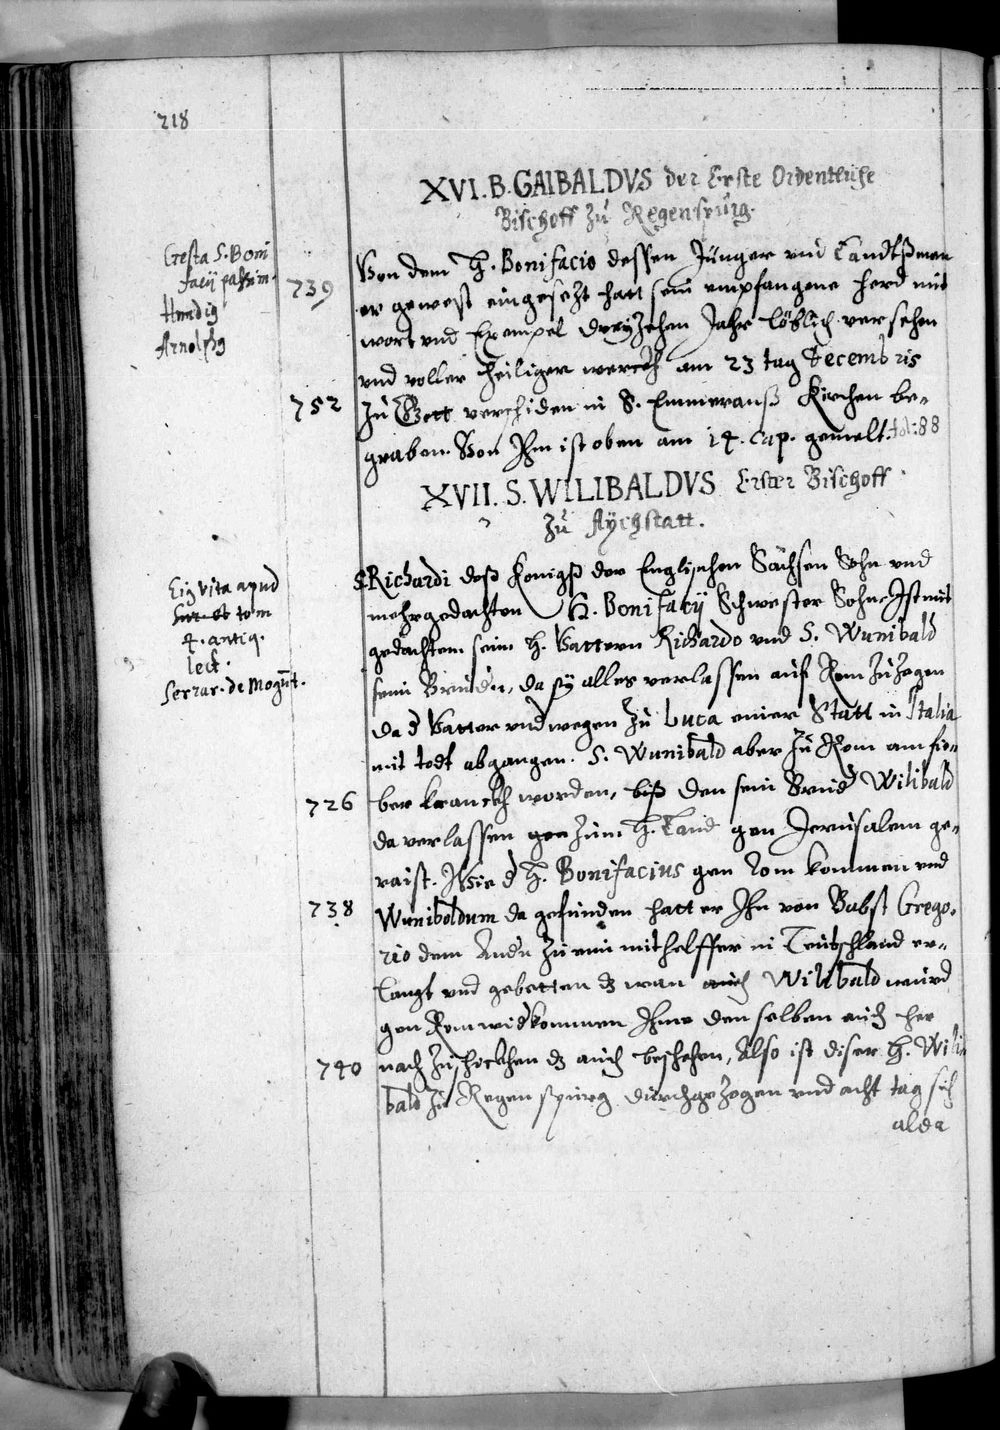 218
XVI. B. GAIBALDVS der Erste Ordentliche
Bischoff zu Regenspurg.
Gesta S. Boni
facij passim.
Hundig
Arnolphg
739
Von dem H. Bonifacio dessen Jünger vnd Landtßman
er gewest eingesezt hatt sein empfangene herd mit
wort vnd Exempel dreyzehen Jahr löblich versehen
vnd voller heiliger werckh am 23 tag Decembris
752
zu Gott verschiden in S. Emmeranß Kirchen be-
graben. Von Ihm ist oben am 14. cap. gemelt. fol: 88
XVII. S. WILIBALDVS Erster Bischoff
zu Aychstatt.
Eig vita apud
tom
4. antiq.
lect.
Serrar. de Mogunt.
S Richardi deß Königß der Englischen Sachsen Sohn vnd
mehrgedachten H. Bonifacij Schwester Sohn Ist mit
gedachtem seim H. Vattern Richardo vnd S. Wunibald
seim Brudn, da sy alles verlassen auf Rom zu zogen
da d Vatter vndwegen zu Luca einer Statt in Italia
mit todt abgangen. S. Wunibald aber zu Rom am fie-
726
ber kranckh worden, biß den sein Brud Wilibald
da verlassen gen zum H. Land gen Jerusalem ge-
raist. Alsie d H. Bonifacius gen Rom kommen vnd
738
Wuniboldum da gefunden hatt er Ihn von Babst Grego-
rio dem Andn zu eim mithelffer in Teutschland er-
langt vnd gebetten dz wan auch Wilibald wurd
gen Rom widkommen Ihme den selben auch her
740
nach zuschickhen dz auch beschehen, Also ist diser H. Wili-
bald zu Regenspurg durchgezogen vnd acht tag sich
alda